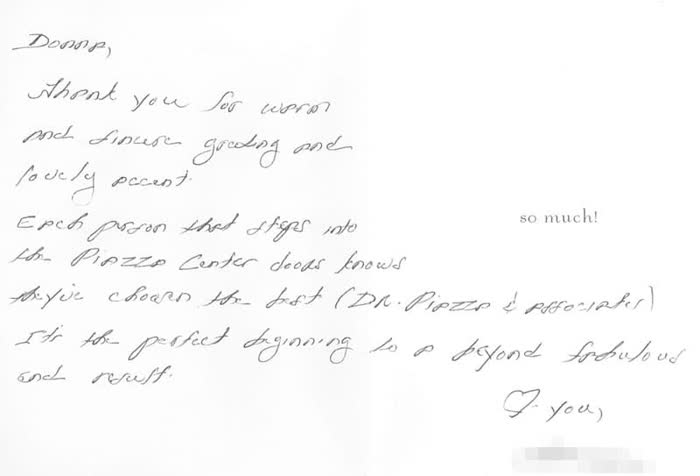 Donna,
Thank you for warm
and sincere greeting and
lovely accent.
Each person that steps into
the Piazza Center doors knows
they've chosen the best (DR. Piazza & associates)
It's the perfect beginning to a beyond fabulous
end result.
so much!
♡ you,